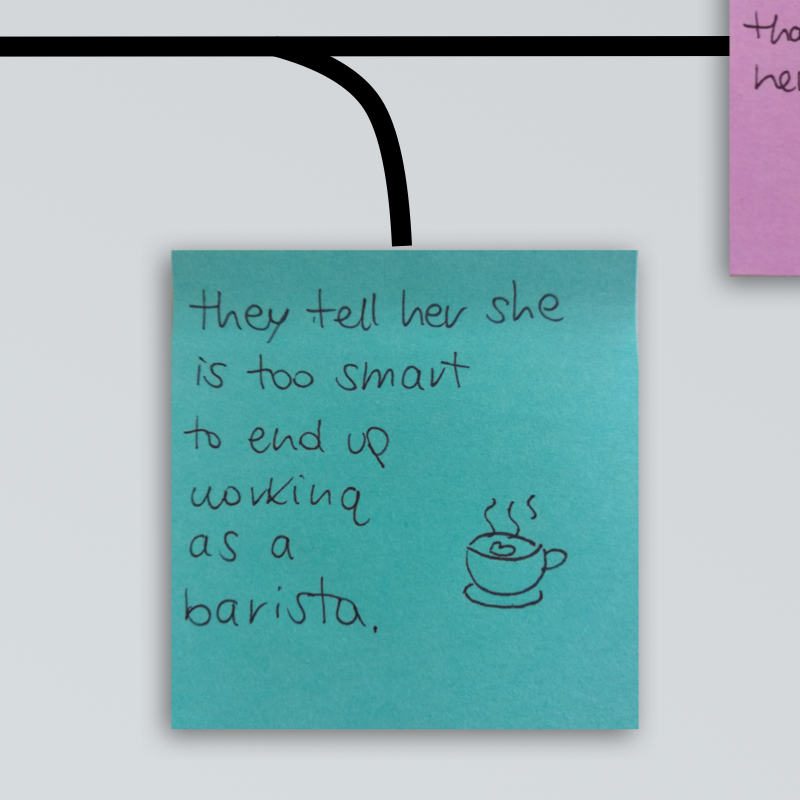 they tell her she
is too smart
to end up
working
as a
barista.